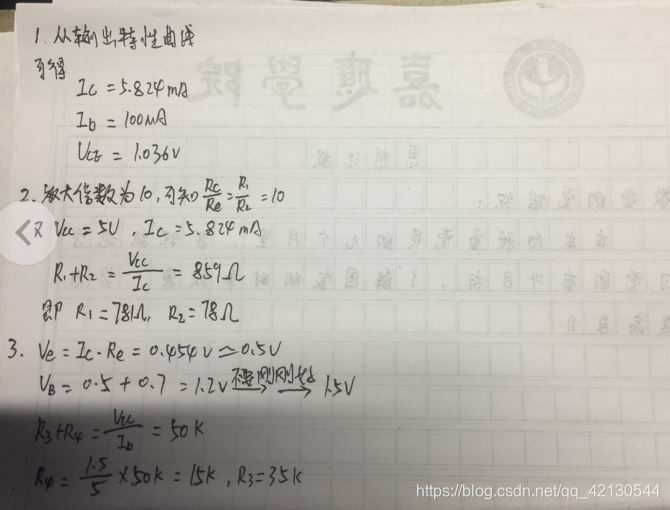 1. 从输出特性曲线
可得
Ic = 5.824mA
Ib = 100uA
UCE = 1.036V
2. 放大倍数为10,可知 Rc/Re = R1/R2 = 10
又 Vcc = 5V, Ic = 5.824mA
R1+R2 = Vcc/Ic = 859Ω
即 R1 = 781Ω, R2 = 78Ω
3. Ve = Ic·Re = 0.454V ≃ 0.5V
VB = 0.5 + 0.7 = 1.2V 不要刚刚好 → 1.5V
R3+R4 = Vcc/Ib = 50K
R4 = 1.5/5 × 50K = 15K, R3 = 35K
嘉應學院
https://blog.csdn.net/qq_42130544